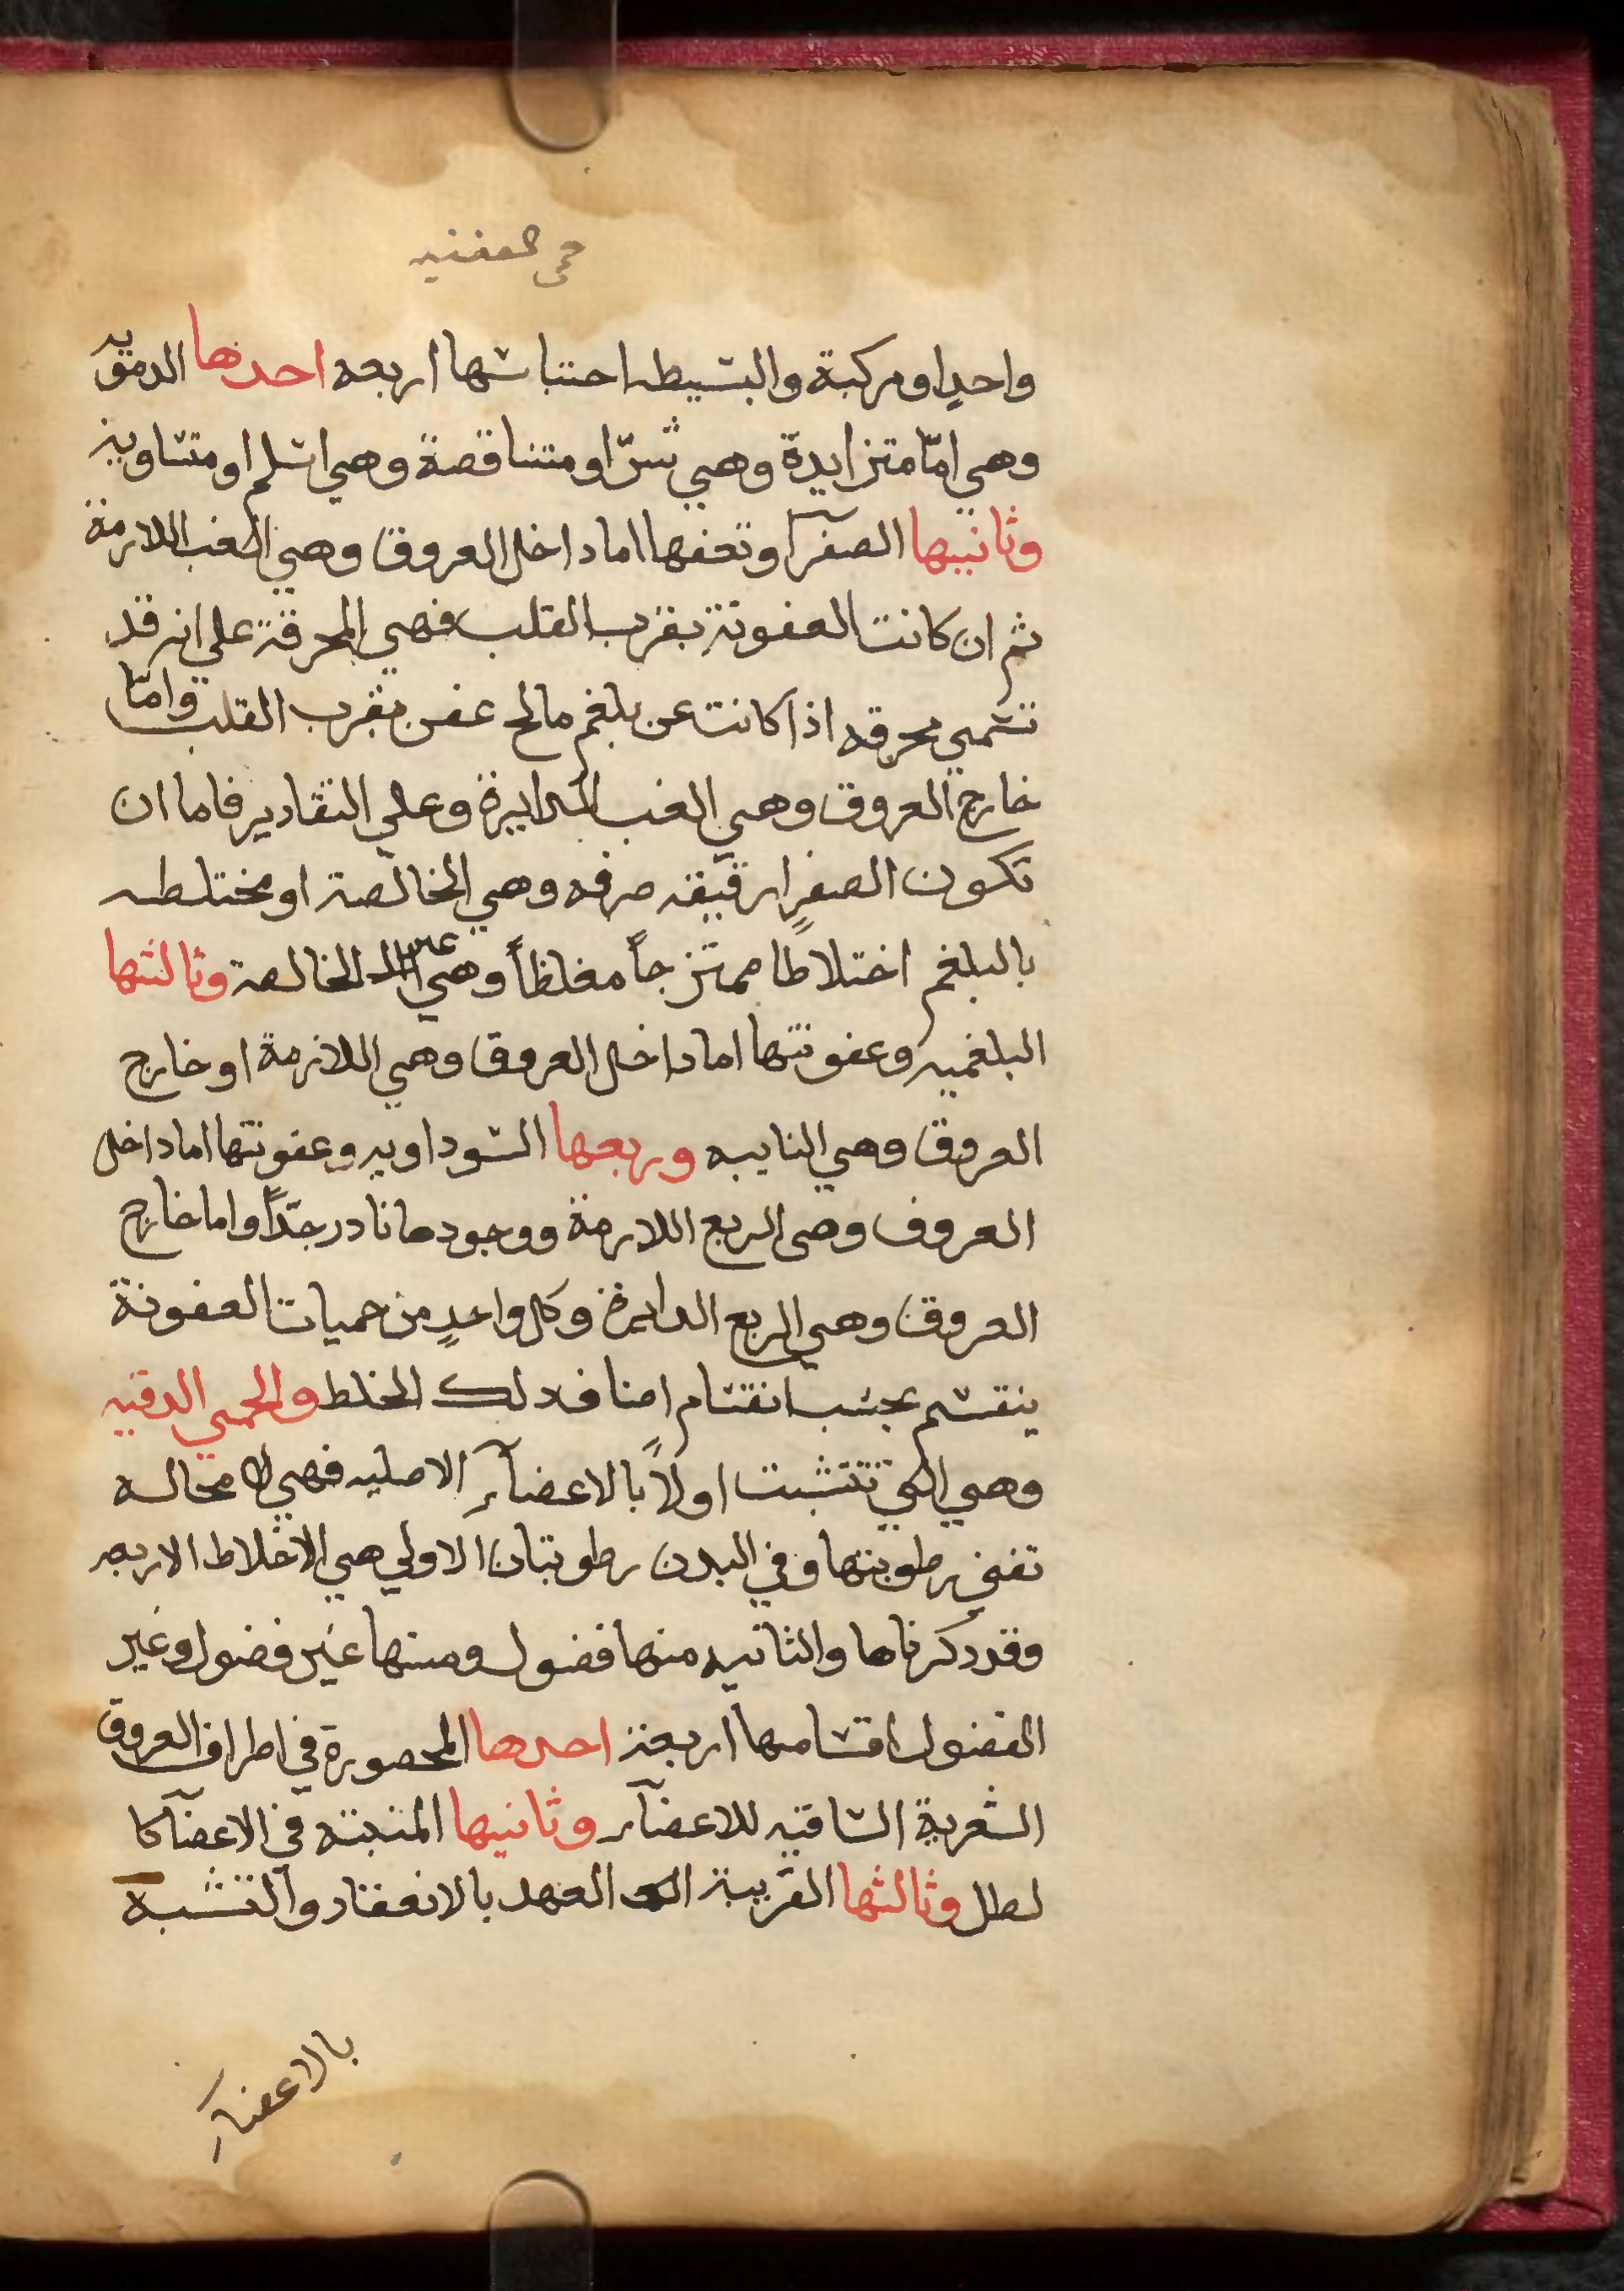 حمى العفنيه
واحدٍ او مركبة والبسيطه احتباسها اربعه احدها الدمويه
وهي امّا متزايدة وهي شرّ او متناقصة وهي اسلم او متساوية
وثانيها الصفرآ وتعفنها اما داخل العروق وهي الغب اللازمة
ثم ان كانت العفونة بقرب القلب فهي المحرقة علي انه قد
تسمي محرقه اذا كانت عن بلغم مالح عفن بقرب القلب وامّا
خارج العروق وهي الغب الدايرة وعلي التقادير فاما ان
تكون الصفرا رقيقه صرفه وهي الخالصة او مختلطه
بالبلغم اختلاطا ممتزجاً مغلظاً وهي غير الخالصة وثالثها
البلغميه وعفونتها اما داخل العروق وهي اللازمة او خارج
العروق وهي النايبه وربعها السوداويه وعفونتها اما داخل
العروق وهي الربع اللازمة ووجودها نادر جدّاً واما خارج
العروق وهي الربع الدايرة وكل واحدٍ من حميات العفونة
ينقسم بحسب انقسام اصناف ذلك الخلط والحمي الدقيه
وهي التي تتشبت اولاً بالاعضآء الاصليه فهي لا محاله
تفني رطوبتها وفي البدن رطوبتان الاولي هي الاخلاط الاربعه
وقد ذكرناها والثانيه منها فضول ومنها غير فضول وغير
الفضول اقسامها اربعة احدها المحصورة في اطراف العروق
الشعرية الساقيه للاعضآء وثانيها المنبته في الاعضآ كا
لطل وثالثها القريبة العهد بالانعقاد والتشبه
بالاعضآء